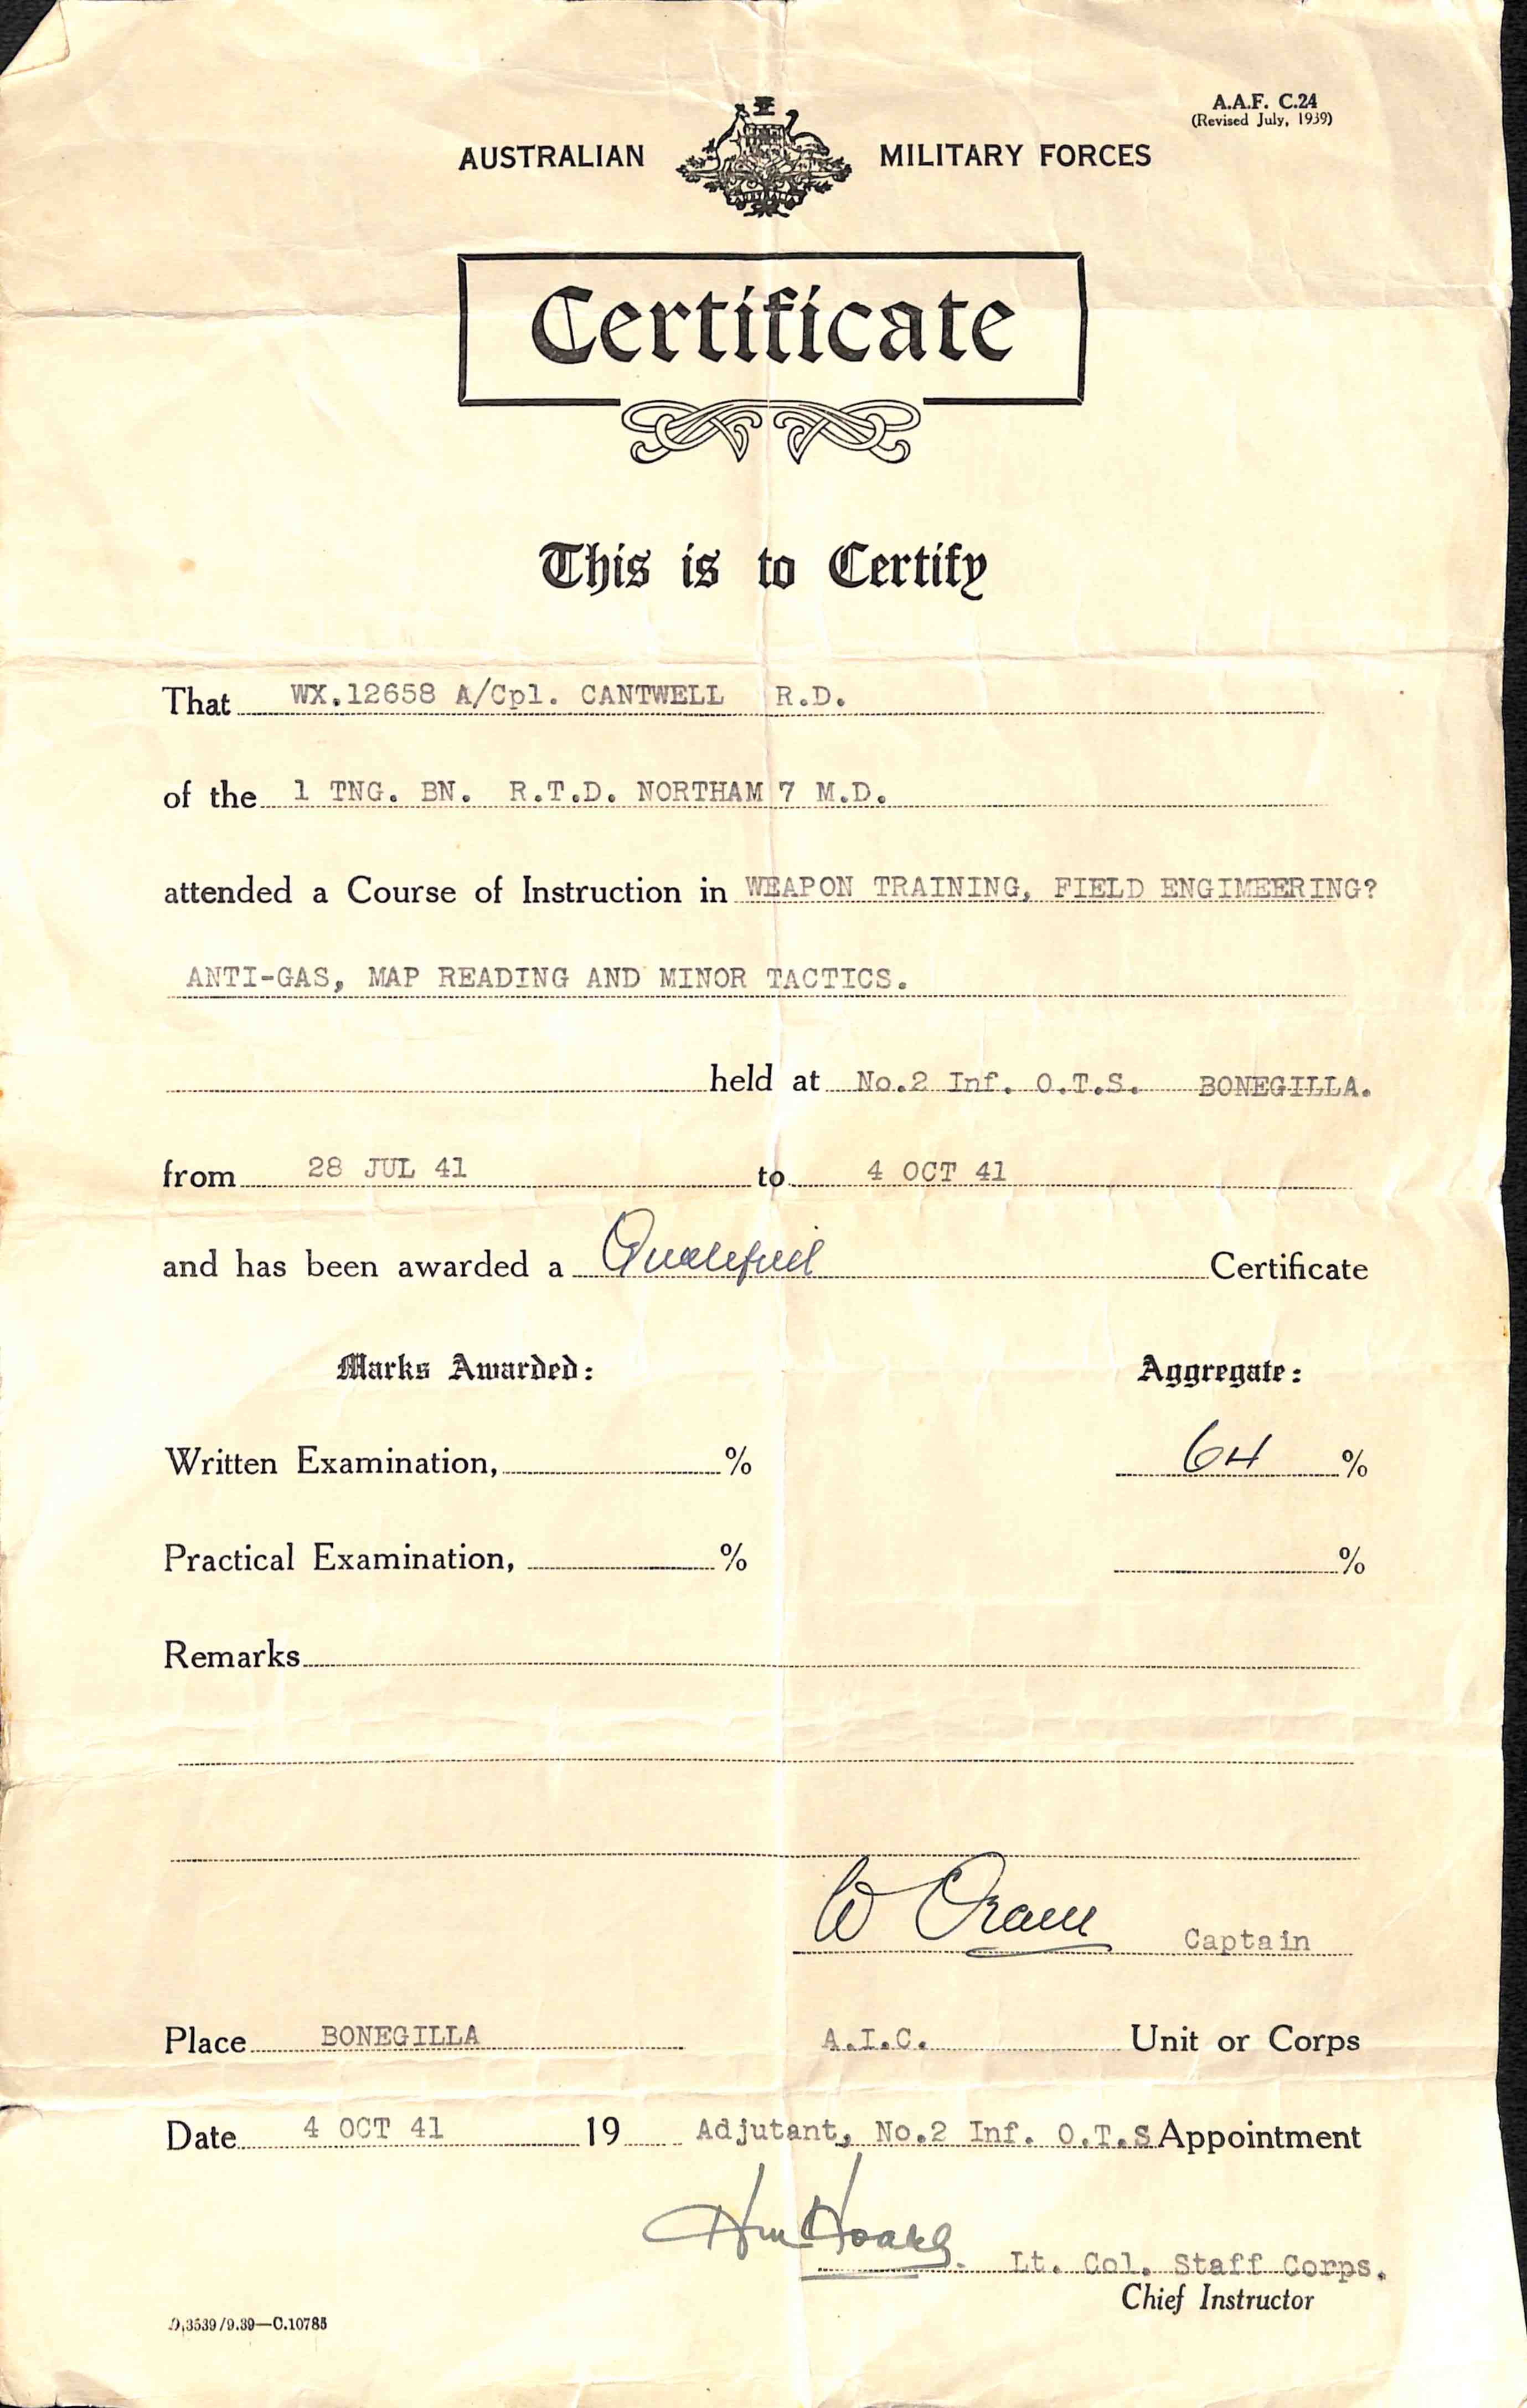 A.A.F. C.24
(Revised July, 1939)
AUSTRALIAN MILITARY FORCES
Certificate
This is to Certify
That WX.12658 A/Cpl. CANTWELL R.D.
of the 1 TNG. BN. R.T.D. NORTHAM 7 M.D.
attended a Course of Instruction in WEAPON TRAINING, FIELD ENGIMEERING?
ANTI-GAS, MAP READING AND MINOR TACTICS.
held at No.2 Inf. O.T.S. BONEGILLA.
from 28 JUL 41 to 4 OCT 41
and has been awarded a Qualified Certificate
Marks Awarded: Aggregate:
Written Examination, % 64 %
Practical Examination, % %
Remarks
W Captain
Place BONEGILLA A.I.C. Unit or Corps
Date 4 OCT 41 19 Adjutant, No.2 Inf. O.T.S Appointment
Lt. Col. Staff Corps.
Chief Instructor
3539/9.39—C.10785